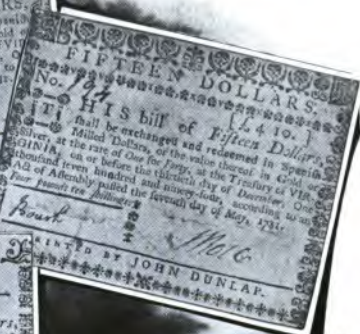 FIFTEEN DOLLARS.
No. 194 [£. 4 10. ]
THIS bill of Fifteen Dollars,
shall be exchanged and redeemed in Spanish
Milled Dollars, or the value thereof in Gold or
Silver, at the rate of One for forty, at the Treasury of VIR-
GINIA, on or before the thirtieth day of December, One
thousand seven hundred and ninety-four, according to an
Act of Assembly passed the seventh day of May, 1781.
Four pounds ten shillings.
PRINTED BY JOHN DUNLAP.